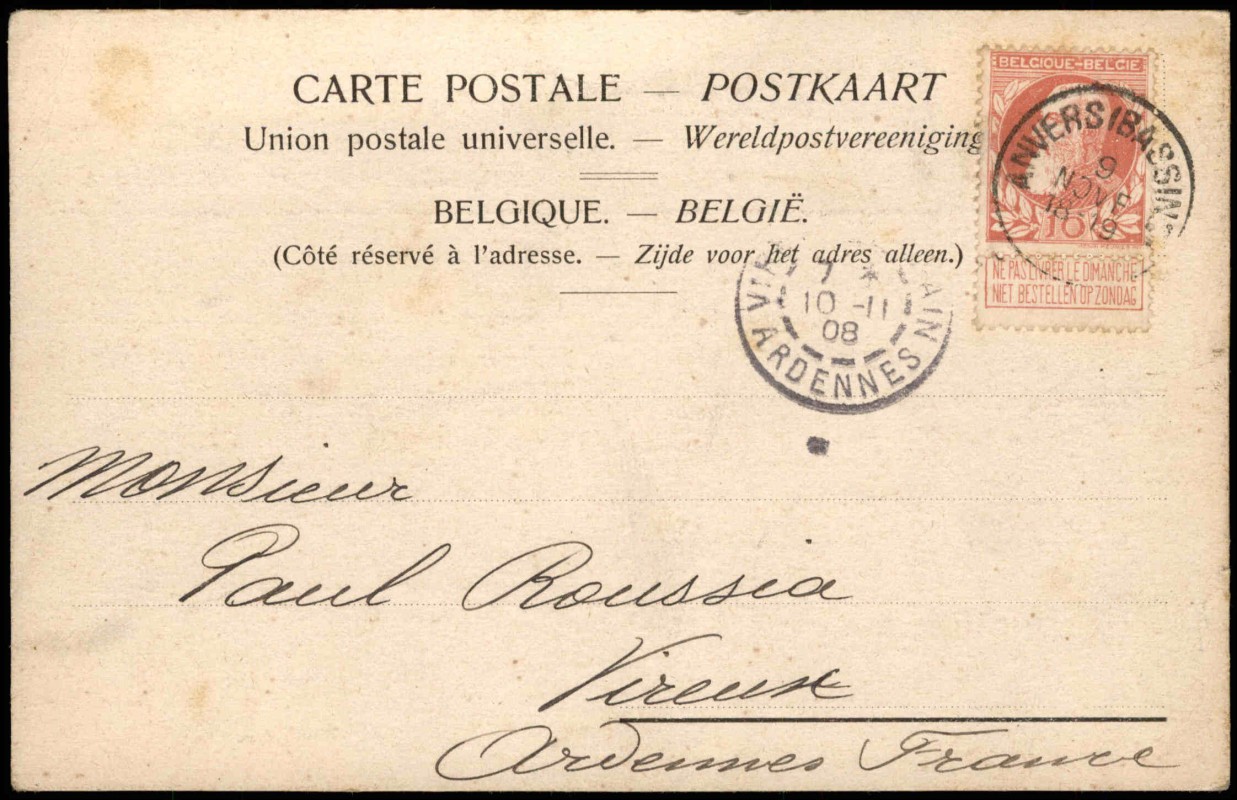 CARTE POSTALE — POSTKAART
Union postale universelle. — Wereldpostvereeniging
BELGIQUE. — BELGIË.
(Côté réservé à l'adresse. — Zijde voor het adres alleen.)
BELGIQUE-BELGIE
10
NE PAS LIVRER LE DIMANCHE
NIET BESTELLEN OP ZONDAG
ANVERS (BASSINS
9
NOVE
18-19
7
10-11
08
ARDENNES
Monsieur
Paul Roussea
Vireux
Ardennes France